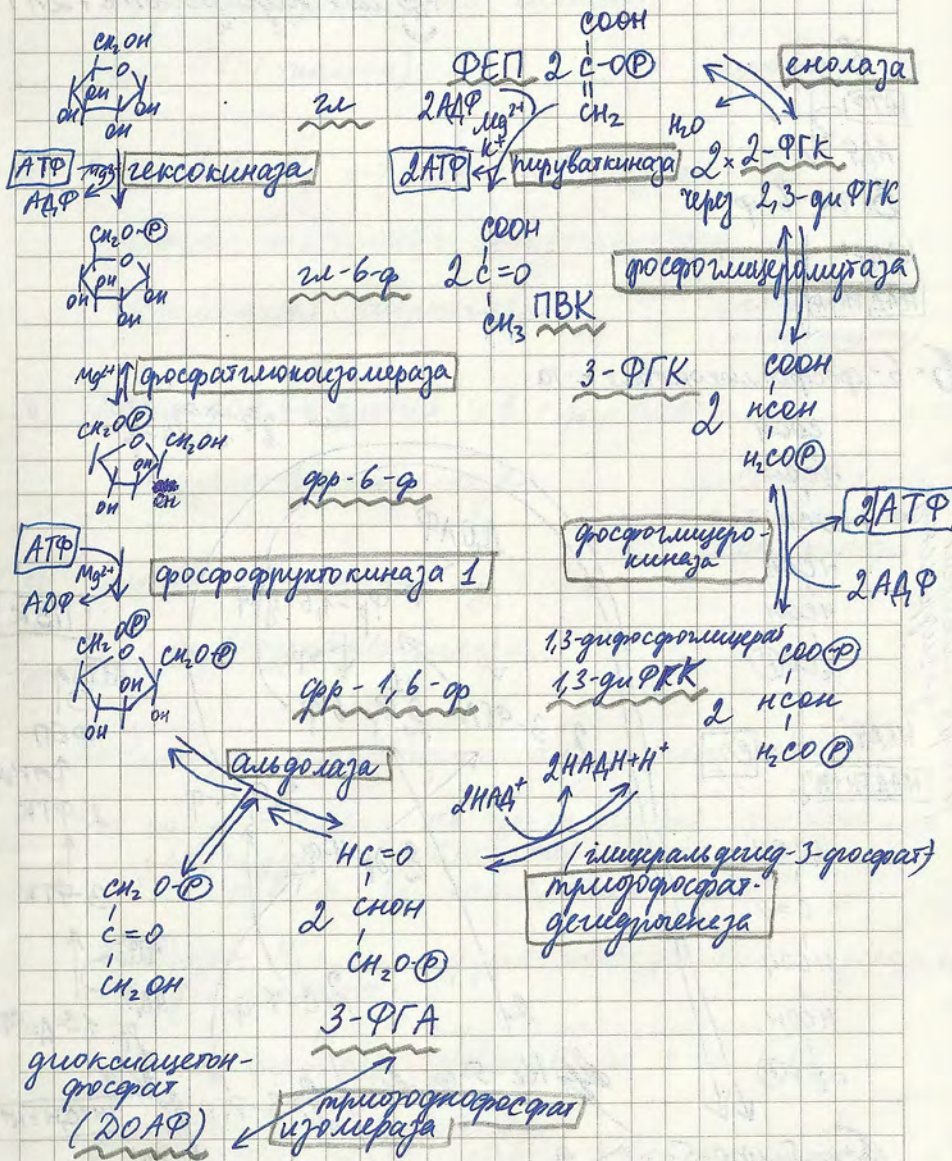 CH₂OH
O
OH
OH
OH
OH
гл
АТФ
Mg²⁺
гексокиназа
АДФ
CH₂O-Ⓟ
O
OH
OH
OH
OH
гл-6-ф
Mg²⁺
фосфатглюкоизомераза
CH₂OⓅ
O
CH₂OH
OH
OH
фр-6-ф
АТФ
Mg²⁺
АДФ
фосфофруктокиназа 1
CH₂OⓅ
O
CH₂O-Ⓟ
OH
OH
OH
фр-1,6-ф
альдолаза
CH₂O-Ⓟ
C=O
CH₂OH
диоксиацетон-
фосфат
(ДОАФ)
HC=O
2 CHOH
CH₂O-Ⓟ
3-ФГА
триозодиофосфат
изомераза
2НАД⁺
2НАДН+Н⁺
(глицеральдегид-3-фосфат)
триозофосфат-
дегидрогеназа
1,3-дифосфоглицерат
1,3-диФГК
COO-Ⓟ
2 HCOH
H₂COⓅ
фосфоглицеро-
киназа
2АТФ
2АДФ
3-ФГК
COOH
2 HCOH
H₂COⓅ
фосфоглицеромутаза
2× 2-ФГК
через 2,3-диФГК
H₂O
енолаза
ФЕП
COOH
2 C-OⓅ
CH₂
2АДФ
Mg²⁺
K⁺
2АТФ
пируваткиназа
COOH
2 C=O
CH₃
ПВК